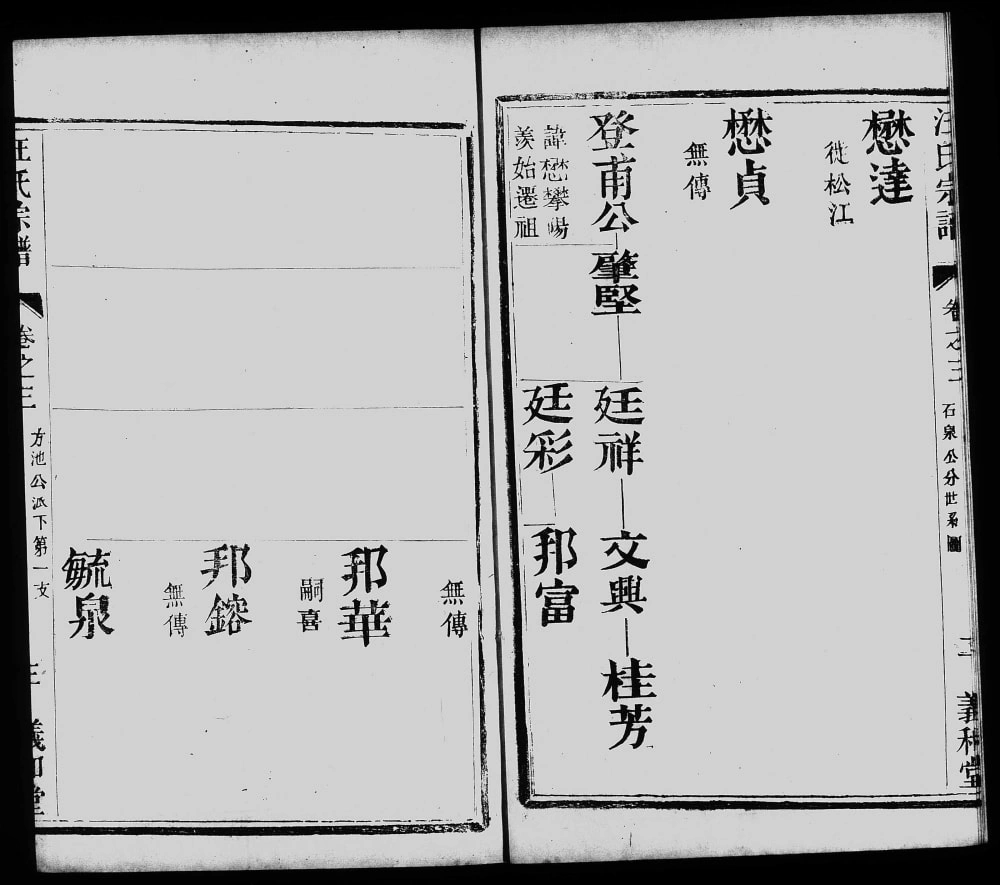 汪氏宗譜 卷之三 石泉公分世系圖 二 義和堂
懋達
徙松江
懋貞
無傳
登甫公 肇堅 廷祥 文興 桂芳
諱懋攀陽
羨始遷祖
廷彩 邦富
無傳
邦華
嗣喜
邦鎔
無傳
毓泉
汪氏宗譜 卷之三 方池公派下第一支 三 義和堂